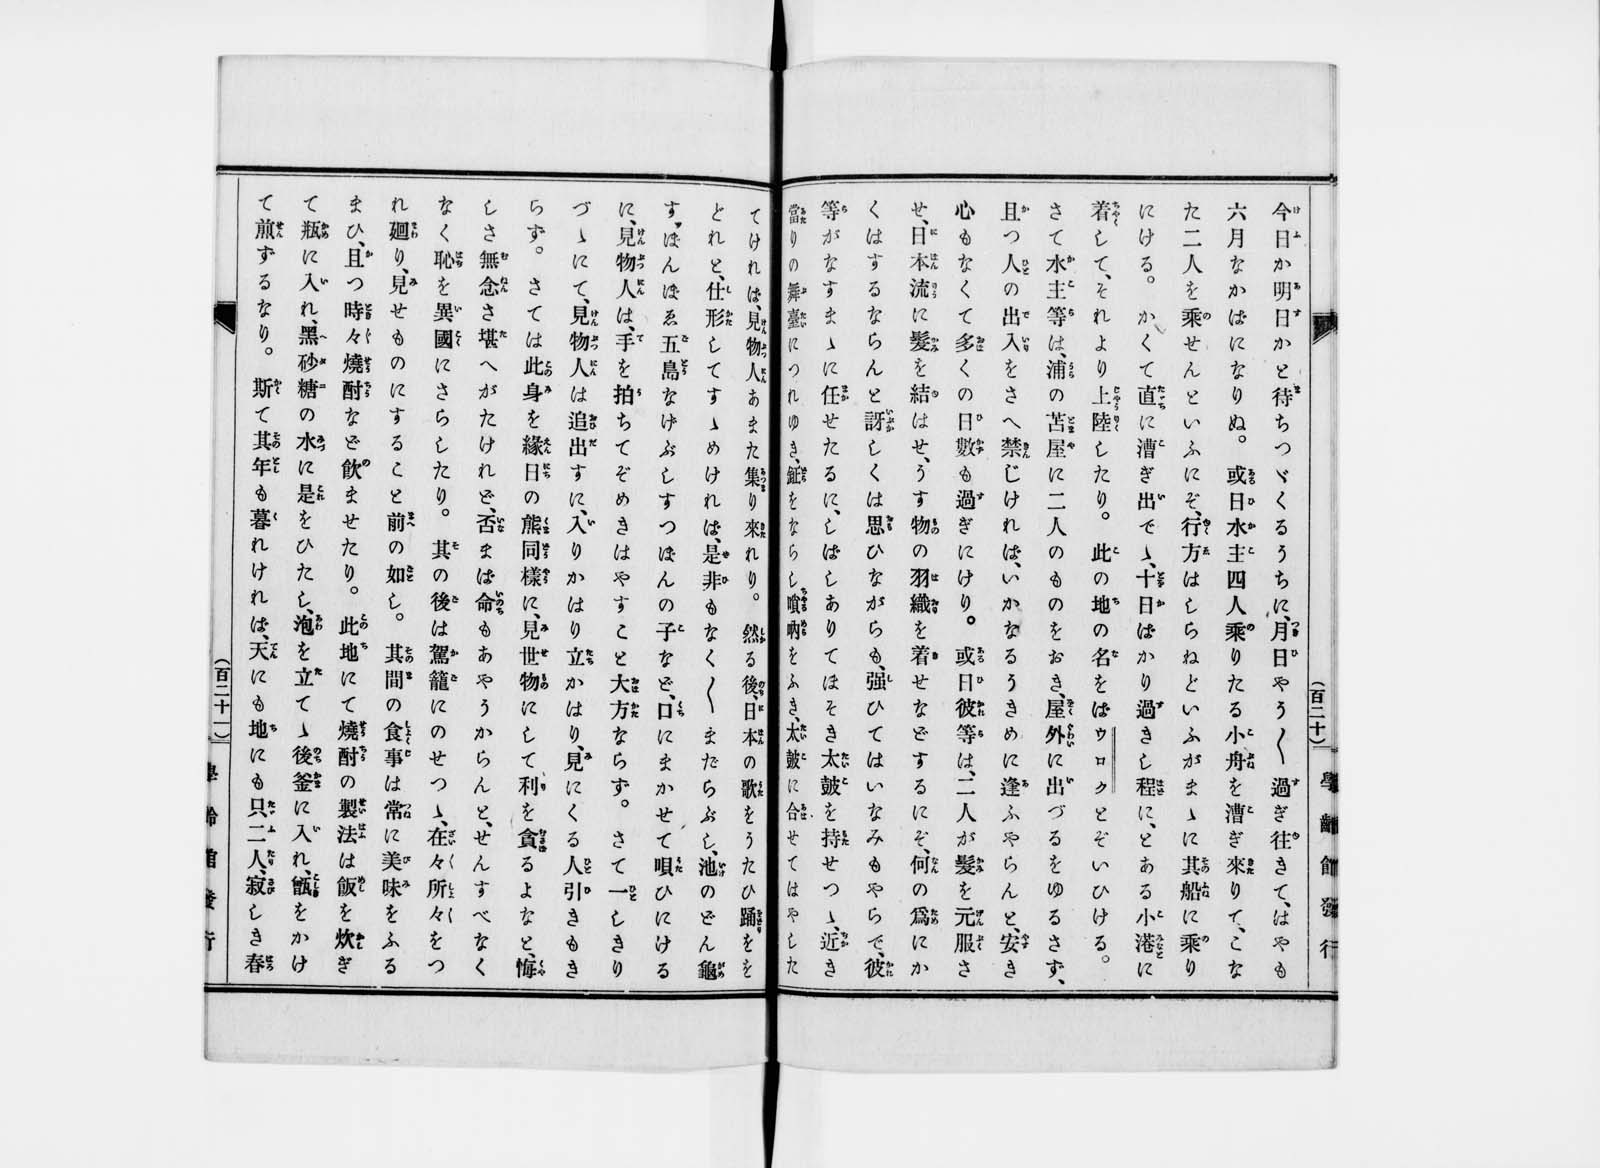 今日か明日かと待ちつゞくるうちに、月日やう〳〵過ぎ往きて、はやも
六月なかばになりぬ。或日水主四人乘りたる小舟を漕ぎ來りて、こな
た二人を乘せんといふにぞ、行方はしらねどいふがまゝに其船に乘り
にける。かくて直に漕ぎ出でゝ、十日ばかり過きし程に、とある小港に
着して、それより上陸したり。此の地の名をばウロロクとぞいひける。
さて水主等は、浦の苫屋に二人のものをおき、屋外に出づるをゆるさず、
且つ人の出入をさへ禁じければ、いかなるうきめに逢ふやらんと、安き
心もなくて多くの日數も過ぎにけり。或日彼等は、二人が髮を元服さ
せ、日本流に髮を結はせ、うす物の羽織を着せなどするにぞ、何の爲にか
くはするならんと訝しくは思ひながらも、强ひてはいなみもやらで、彼
等がなすまゝに任せたるに、しばしありてほそき太皷を持せつゝ、近き
當りの舞臺につれゆき、鉦をならし嗩吶をふき、太皷に合せてはやした
(百二十)
學齡館發行
てければ、見物人あまた集り來れり。然る後、日本の歌をうたひ踊をを
どれと、仕形してすゝめければ、是非もなく〳〵まだらぶし、池のどん龜
す、ぽんぽゑ五島なげぶしすつぽんの子など、口にまかせて唄ひにける
に、見物人は、手を拍ちてぞめきはやすこと大方ならず。さて一しきり
づゝにて、見物人は追出すに、入りかはり立かはり、見にくる人引きもき
らず。さては此身を緣日の熊同樣に、見世物にして利を貪るよなと、悔
しさ無念さ堪へがたけれど、否まば命もあやうからんと、せんすべなく
なく恥を異國にさらしたり。其の後は駕籠にのせつゝ、在々所々をつ
れ廻り、見せものにすること前の如し。其間の食事は常に美味をふる
まひ、且つ時々燒酎など飮ませたり。此地にて燒酎の製法は飯を炊ぎ
て瓶に入れ、黑砂糖の水に是をひたし、泡を立てゝ後釜に入れ、甑をかけ
て煎ずるなり。斯て其年も暮れければ、天にも地にも只二人、寂しき春
(百二十一)
學齡館發行